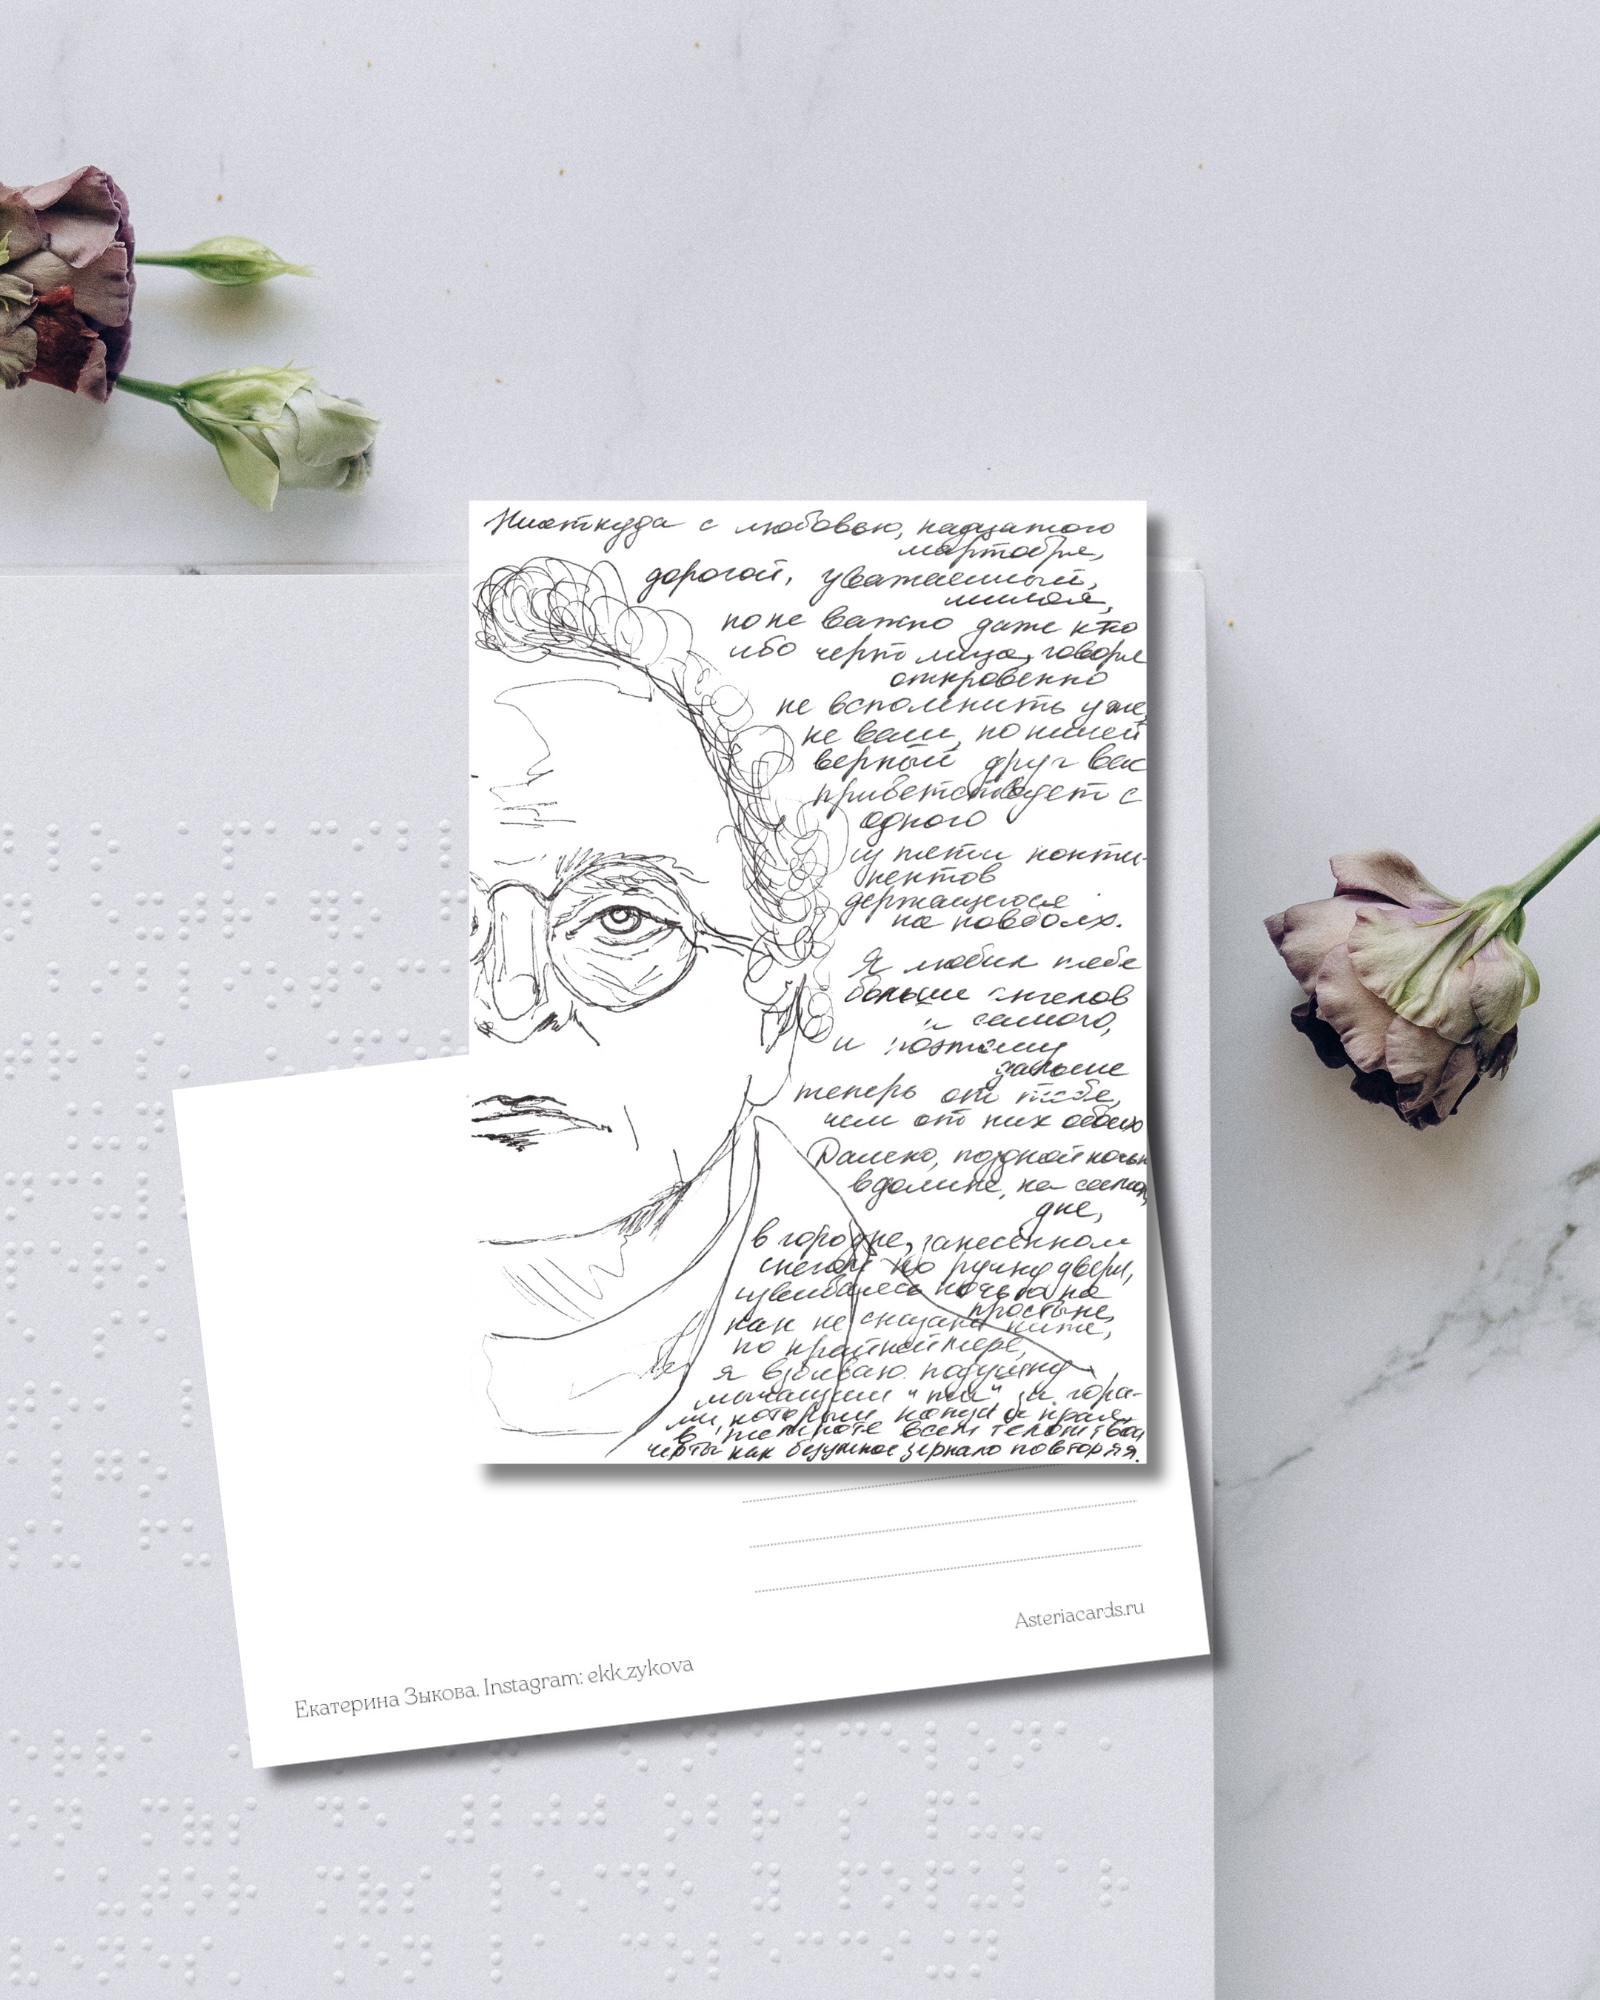 Ниоткуда с любовью, надцатого
мартобря,
дорогой, уважаемый,
милая,
но не важно даже кто
ибо черт лица, говоря
откровенно
не вспомнить уже,
не ваш, но ничей
верный друг вас
приветствует с
одного
из пяти конти-
нентов
держащегося
на ковбоях.
Я любил тебя
больше ангелов
и самого,
и поэтому
дальше
теперь от тебя,
чем от них обоих
Далеко, поздной ночью
в долине, на самом
дне,
в городке, занесенном
снегом по ручку двери,
извиваясь ночью на
простыне,
как не сказано ниже,
по крайней мере,
я взбиваю подушку
мычащим "ты" за горя-
ми, которым конца и края,
в темноте всем телом твои
черты как безумное зеркало повторяя.
Asteriacards.ru
Екатерина Зыкова. Instagram: ekk_zykova